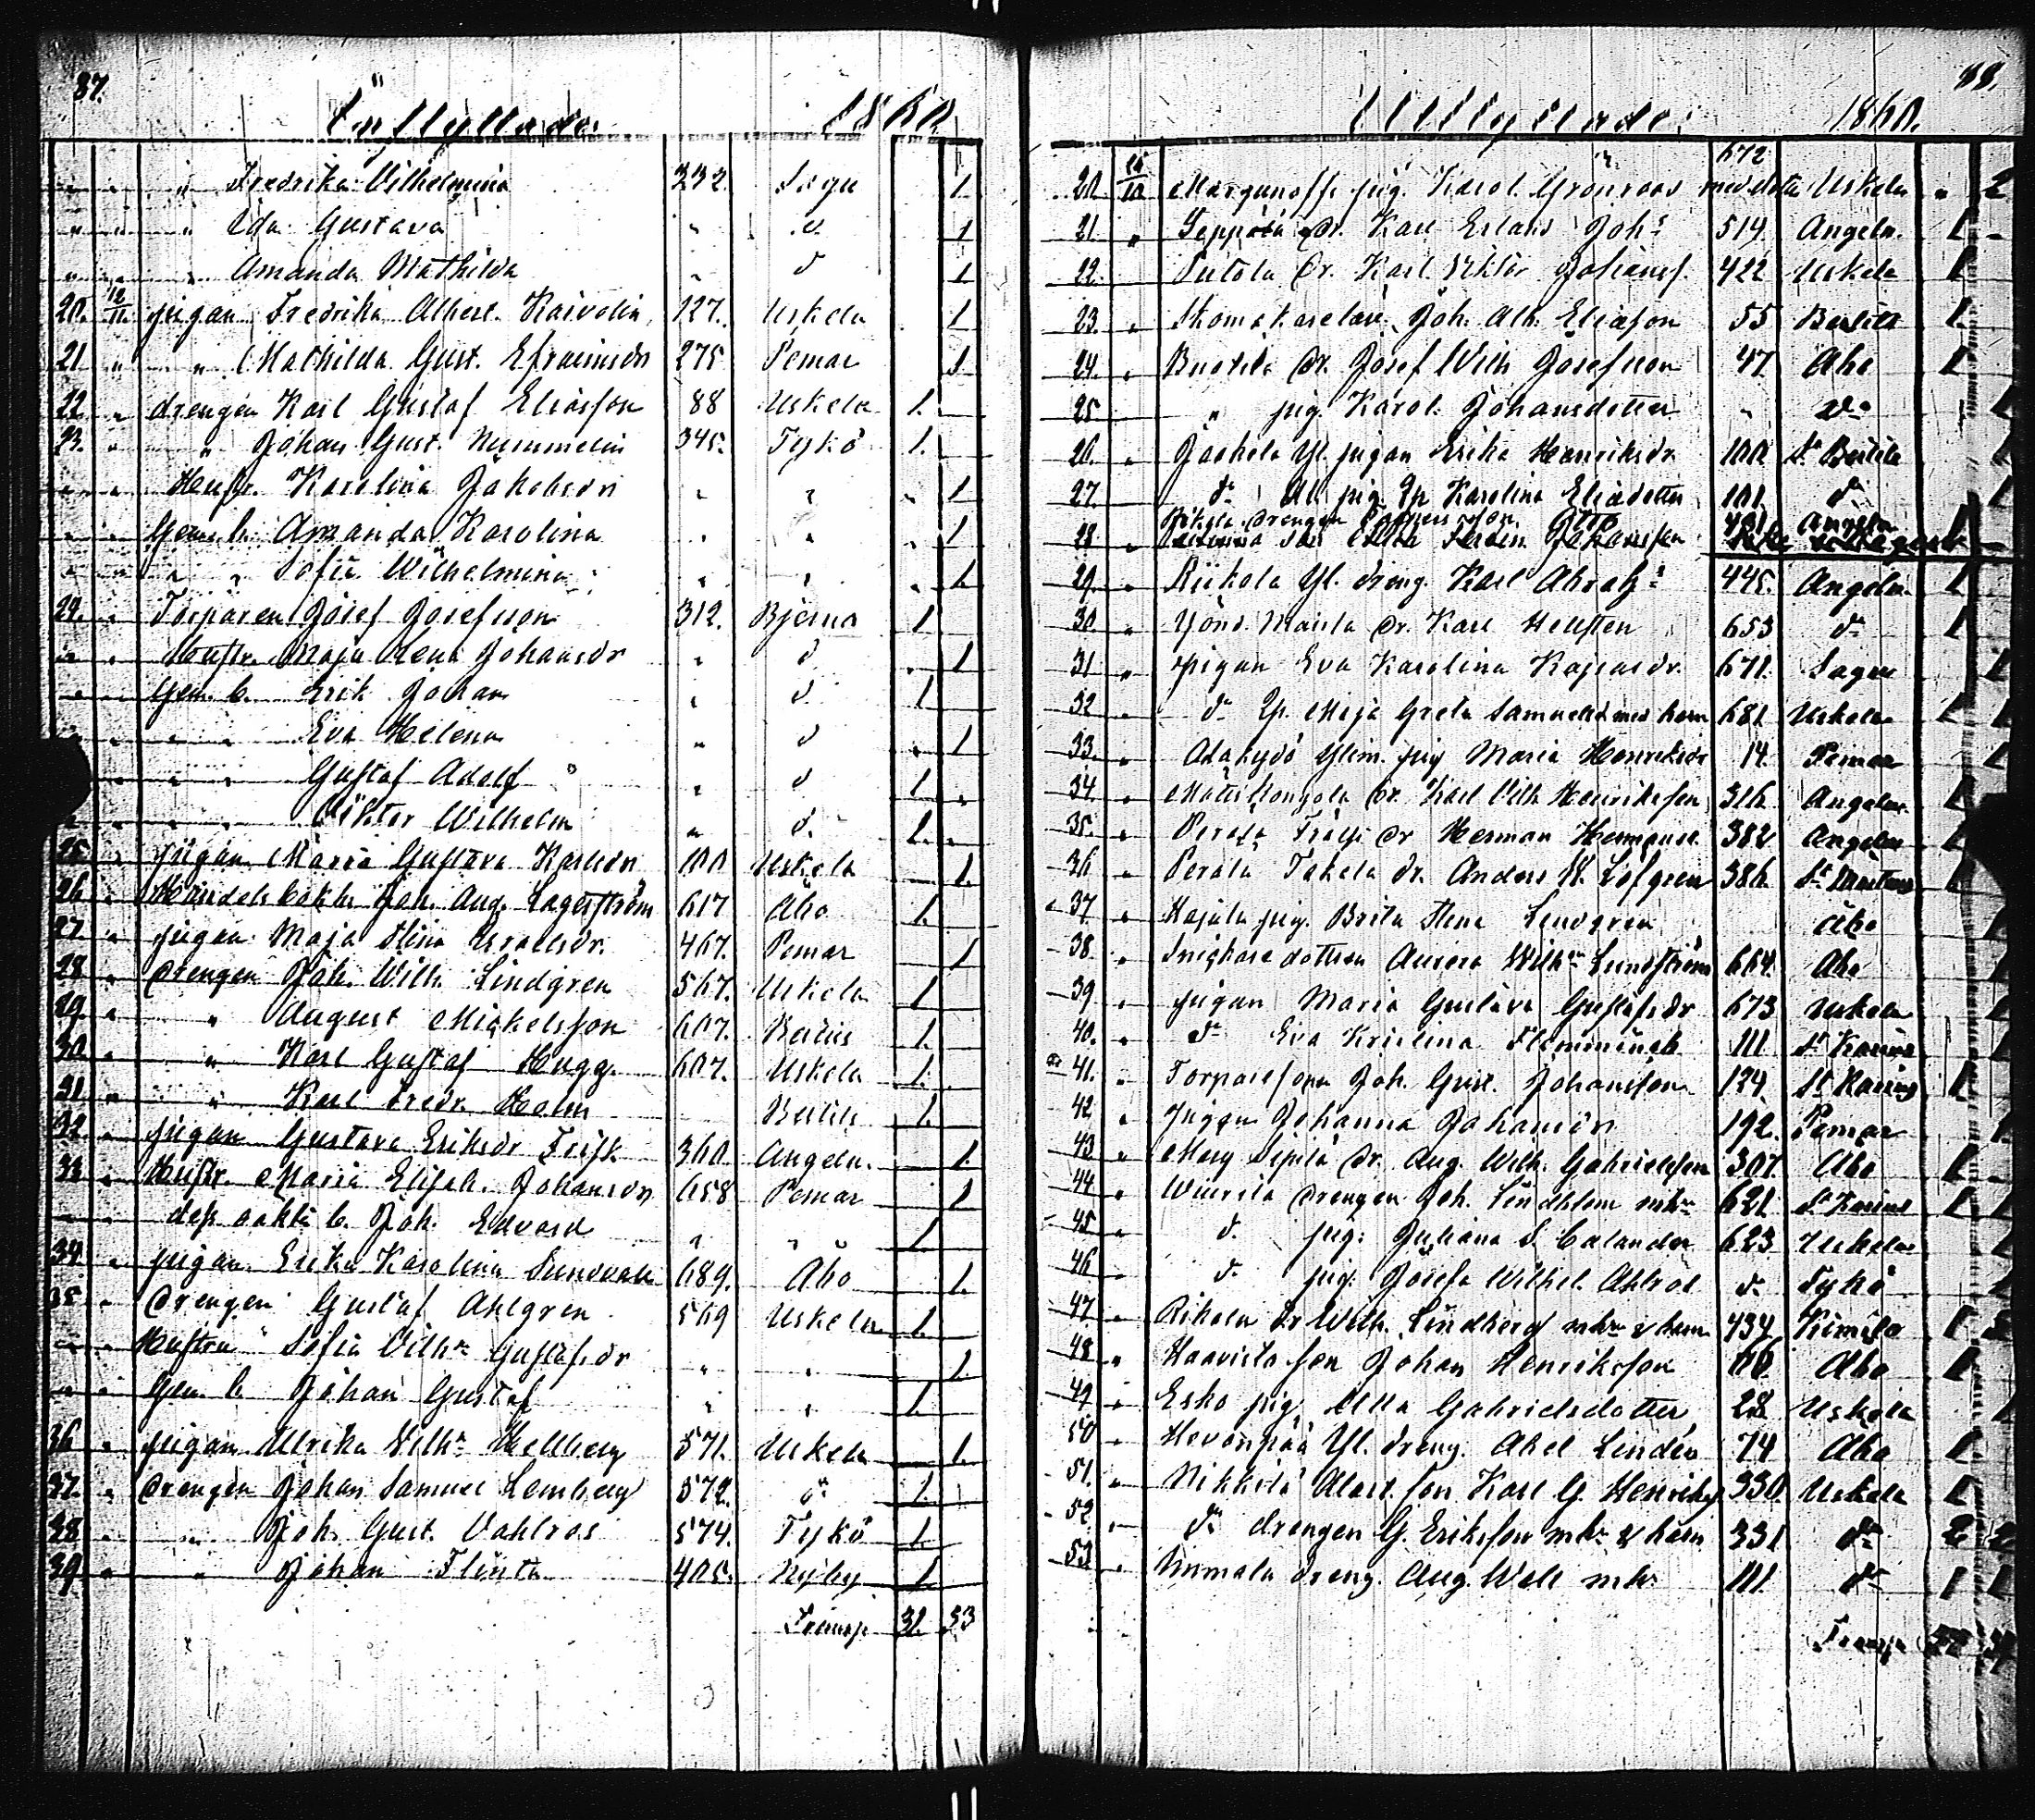 87.
Inflyttade. 1860
" " " Fredrika Vilhelmina 232. Sagu 1.
" " " Ida Gustava " d. 1
" " " Amanda Mathilda " d 1
20. 12/11 pigan Fredrika Albert. Kaivolin 127. Uskela 1
21 " " Mathilda Gust. Efraimsdr 275 Pemar 1.
22. " drengen Karl Gustaf Eliasson 88 Uskela 1.
23. " " Johan Gust. Nummelin 345. Tykö 1.
" " Hustr. Karolina Jakobsdr " " 1
" " Gem. b. Amanda Karolina " " 1
" " " " Sofia Wilhelmina " " 1.
24. " Torparen Josef Josefsson 312. Bjerno 1.
" " Hustr. Maja Lena Johansdr " d 1
" " Gem. b. Erik Johan " d. 1
" " " Eva Helena " d 1
" " " Gustaf Adolf " d 1.
" " " Viktor Wilhelm " d. 1.
25. " pigan Maria Gustava Karlsdr 100 Uskela 1.
26. " Handels bokh. Joh. Aug. Lagerström 617 Åbo 1.
27. " pigan Maja Stina Israelsdr. 467. Pemar 1
28. " drengen Joh. Wilh. Lindgren 567. Uskela 1
29. " " August Mickelsson 607. 1.
30. " " Karl Gustaf Hugg. 607. Uskela 1.
31 " " Karl Fredr. Holm 1.
32. " pigan Gustava Eriksdr 360 Angeln. 1.
33 " Hustr. Maria Elisab. Johansdr 658 Pemar 1
" " dess oäkta b. Joh. Edvard " " 1
34. " pigan Erika Karolina Sundvall 689. Åbo 1.
35 " drengen Gustaf Ahlgren 569 Uskela 1.
" " Hustrun Sofia Vilhm Gustafsdr " " 1.
" " Gem. b. Johan Gustaf " " 1.
36 " pigan Ulrika Wilhm Hellberg 571. Uskela 1.
37. " drengen Johan Samuel Lemberg 572. d:o 1.
38 " " Joh. Gust. Vahlros 574. Tykö 1.
39 " " Johan Flinta 405. Nyby 1.
Transp. 31. 53
88.
Utflyttade. 1860.
20. pig. Karol. Grönroos med dotter 672 Uskela " 2
21. " Seppälä dr. Karl Erland Joh:s 514 Angeln. 1
22. " dr. Karl Viktor Johanss. 422 Uskela 1
23. " Skomakarelärl. Joh. Alb. Eliasson 55 1.
24. " dr. Josef Wilh Josefsson 47 Åbo 1
25 " pig. Karol. Johansdotter " d:o 1
26. " Yl. pigan Erika Henriksdr 100 1
27. " d:o Al. pig. Karolina Eliasdotter 101. d:o 1
28 " Angeln 1
29. " Riikola Yl. dreng. Karl Abrah:s 445. Angeln. 1
30. " dr. Karl Hellsten 653 d:o 1
31 " pigan Eva Karolina 671. Sagu 1
32 " d:o Maja Greta Samuelsd med barn 681 Uskela 1 1
33. " pig Maria Henriksdr 14. Pemar 1
34 " dr. Karl Vilh. Henriksson 316 Angeln. 1
35. " dr Herman Hermanss. 382 Angeln 1
36 " Perälä Takela dr. Anders W. Löfgren 386. 1
37 " Kajala pig. Brita Stina Lindgren Åbo 1
38. " Snickare dottren Aurora Wilhm Lundström 664. Åbo 1
39 " pigan Maria Gustava Gustafsdr 673 Uskela 1
40. " d:o Eva Kristina 111 1
41. " Torparesonen Joh. Gust. Johansson 124 1
42. " pigan Johanna Johansdr 192. Pemar 1
43 " Sipilä dr. Aug. Wilh. Gabrielsson 307. Åbo 1
44. " drengen Joh. Lindblom mhu 621 1 1
45 " d. pig: Juliana S. Calander 623 Uskela 1
46 " d. pig. Josefa Wilhel. Ahlrot d. Tykö 1
47 " Rikola dr Wilh. Lindberg mhu & barn 434 Kimito 1
48 " Haavisto son Johan Henriksson Åbo 1
49 " Esko pig. Ulla Gabrielsdotter 28 Uskela 1
50 " Hevonpää Yl. dreng. Abel Lindén 74 Åbo 1
51. " Nikkilä son Karl G. 330. Uskela 1
52. " d:o drengen G. Eriksson mhu & barn 331 d:o 2 2
53. " dreng. Aug. Wall mhu 111 d:o 1 1
Transp